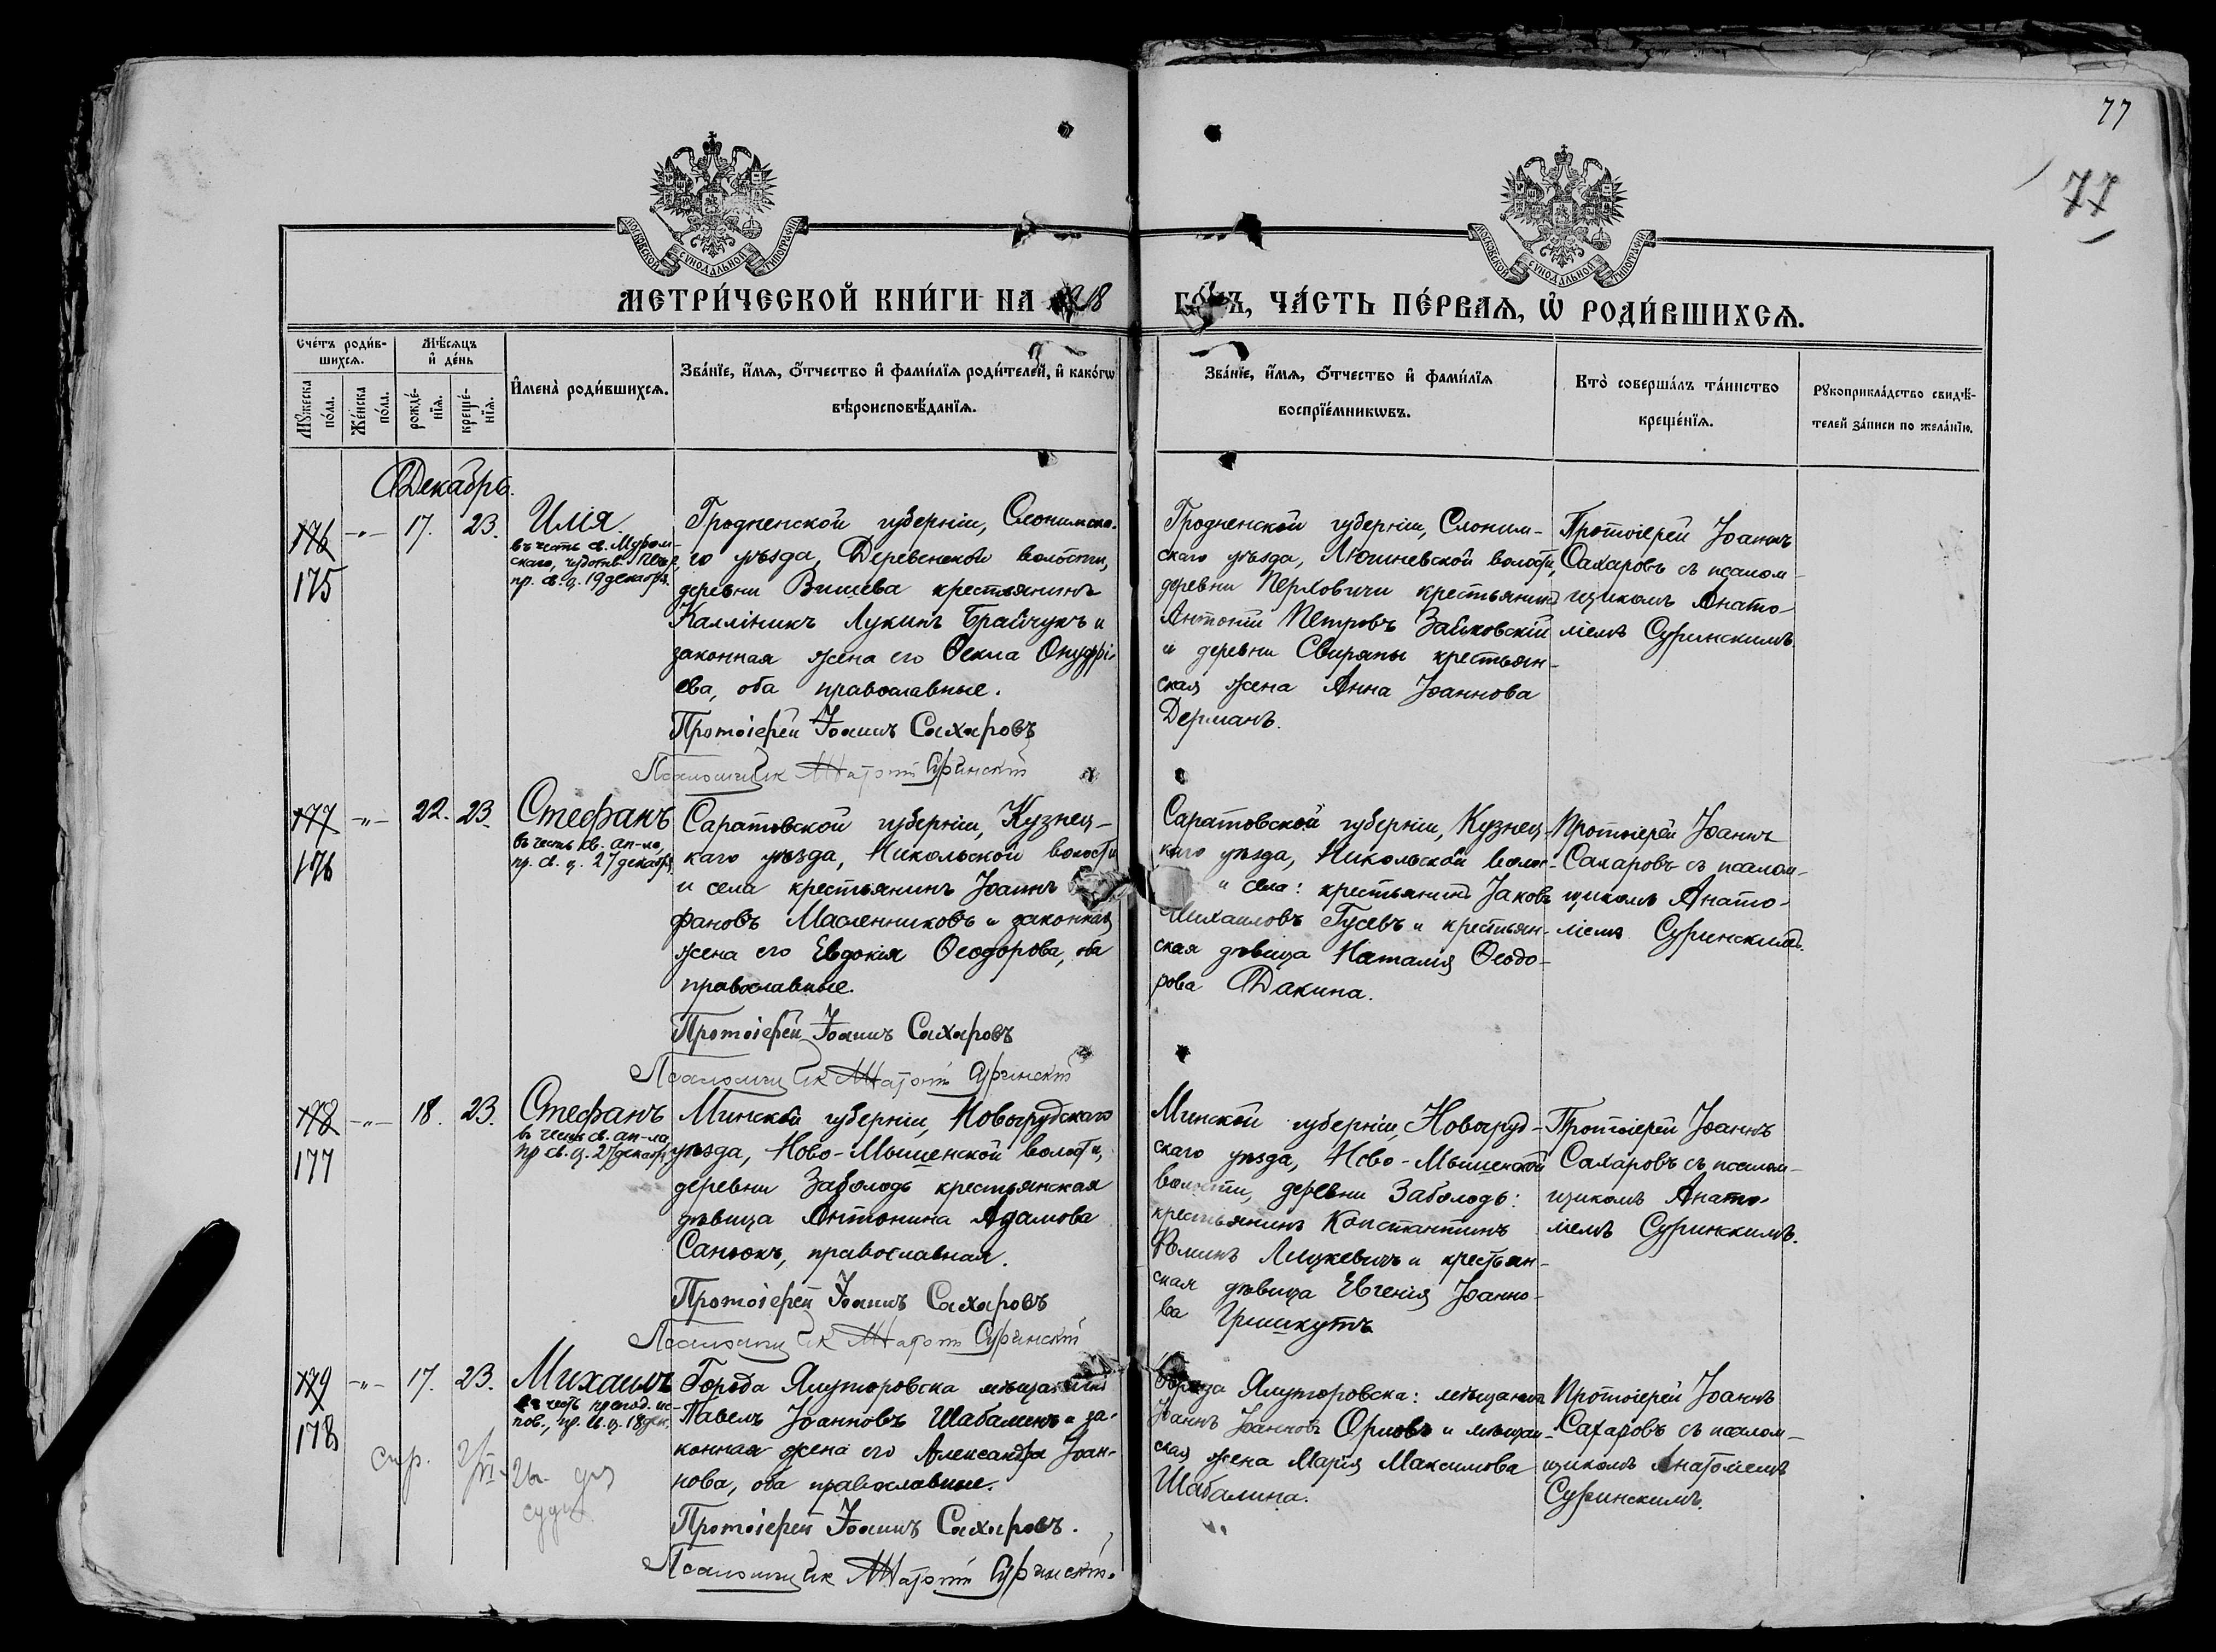 77
77
МОСКОВСКОЙ СУНОДАЛЬНОЙ ТИПОГРАФІИ
МОСКОВСКОЙ СУНОДАЛЬНОЙ ТИПОГРАФІИ
МЕТРИ́ЧЕСКОЙ КНИ́ГИ НА 18
ЧА́СТЬ ПЕ́РВАѦ, Ѡ҆ РОДИ́ВШИХСѦ.
Сче́тъ роди́в-
шихсѧ.
Мѣ́сѧцъ
и҆ де́нь
Мꙋжеска
по́ла.
Же́нска
по́ла.
рожде́-
нїѧ.
креще́-
нїѧ.
И҆мена̀ роди́вшихсѧ.
Зва́нїе, и҆́мѧ, ѻ҆́тчество и҆ фами́лїѧ роди́телей, и҆ како́гѡ
вѣроисповѣ́данїѧ.
Зва́нїе, и҆́мѧ, ѻ҆́тчество и҆ фами́лїѧ
воспрїе́мникѡвъ.
Кто̀ соверша́лъ та́инство
креще́нїѧ.
Рꙋкоприкла́дство свидѣ́-
телей за́писи по жела́нїю.
Декабрь.
176
175
-"- 17. 23.
Илія
въ честь св. Муром-
скаго, чудотв. Печер.
пр. св. ц. 19 декабря.
Гродненской губерніи, Слонимска-
го уѣзда, Деревенской волости,
деревни Вишева крестьянинъ
Каллиникъ Лукинъ Брайчукъ и
законная жена его Ѳекла Онуфрі-
ева, оба православные.
Протоіерей Іоаннъ Сахаровъ
Псаломщик Анатолій Суринскій
Гродненской губерніи, Слоним-
скаго уѣзда, Лючиневской волости,
деревни Перховичи крестьянинъ
Антоній Петровъ Зайковскій
и деревни Свираны крестьян-
ская жена Анна Іоаннова
Дерманъ.
Протоіерей Іоаннъ
Сахаровъ съ псалом-
щикомъ Анато-
ліемъ Суринскимъ
177
176
-"- 22. 23.
Стефанъ
въ честь св. ап-ла,
пр. св. ц. 27 декабря
Саратовской губерніи, Кузнец-
каго уѣзда, Никольской волости
и села крестьянинъ Іоаннъ
фановъ Масленниковъ и законная
жена его Евдокія Ѳеодорова, оба
православные.
Протоіерей Іоаннъ Сахаровъ
Псаломщик Анатолій Суринскій
Саратовской губерніи, Кузнец-
каго уѣзда, Никольской волос-
и села: крестьянинъ Іаковъ
Михаиловъ Гусевъ и крестьян-
ская дѣвица Наталія Ѳеодо-
рова Дакина.
Протоіерей Іоаннъ
Сахаровъ съ псалом-
щикомъ Анато-
ліемъ Суринскимъ.
178
177
-"- 18. 23.
Стефанъ
въ честь св. ап-ла,
пр. св. ц. 27 декабр.
Минской губерніи, Новогрудскаго
уѣзда, Ново-Мышенской волости,
деревни Заболодь крестьянская
дѣвица Антонина Адамова
Санюкъ, православная.
Протоіерей Іоаннъ Сахаровъ
Псаломщик Анатолій Суринскій
Минской губерніи, Новогруд-
скаго уѣзда, Ново-Мышенской
волости, деревни Заболодь:
крестьянинъ Константинъ
Ѳоминъ Лицкевичъ и крестьян-
ская дѣвица Евгенія Іоанно-
ва Гришкутъ
Протоіерей Іоаннъ
Сахаровъ съ псалом-
щикомъ Анато-
ліемъ Суринскимъ.
179
178
-"- 17. 23.
Михаилъ
въ честь препод. ис-
пов., пр. св. ц. 18 дек.
Города Ялуторовска мѣщанинъ
Павелъ Іоанновъ Шабалинъ и за-
конная жена его Александра Іоан-
нова, оба православные.
Протоіерей Іоаннъ Сахаровъ.
Псаломщик Анатолій Суринскій.
Города Ялуторовска: мѣщанинъ
Іоаннъ Іоанновъ Орловъ и мѣщан-
ская жена Марія Максимова
Шабалина.
Протоіерей Іоаннъ
Сахаровъ съ псалом-
щикомъ Анатоліемъ
Суринскимъ.
спр.
для
суда